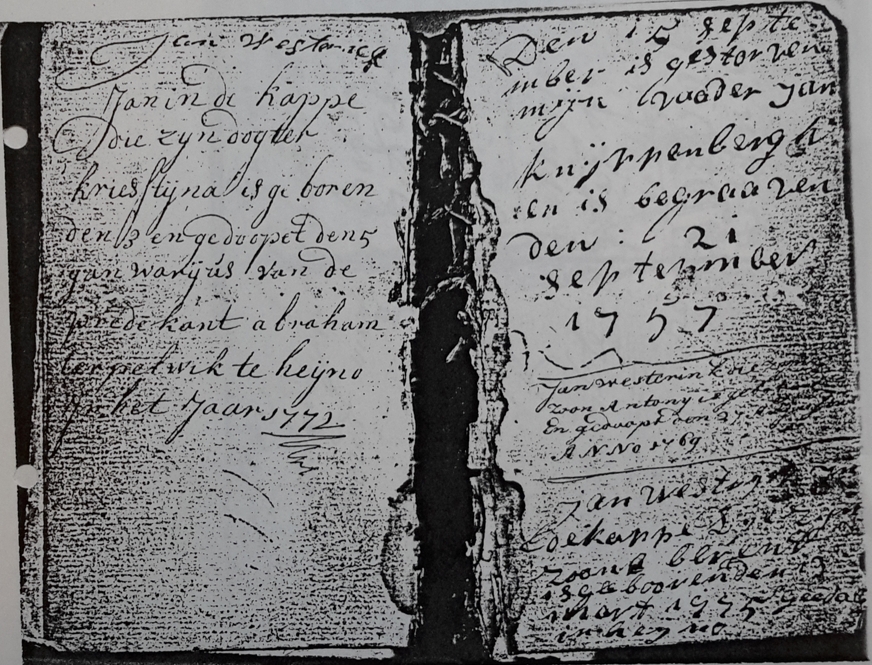 Jan Westerick
Jan in de kappe
die zyn dogter
kriesstyna is ge boren
den 3 en gedoopet den 5
yanwarijus van de
predekant abraham
terpelwik te heijno
in het Jaar 1772
Den 15 septe
mber is gestorven
mijn vaader Jan
knijppenbergh
en is begraaven
den : 21
september
1757
Jan westerink die
zoon Antony is
En gedoopt den 27
ANNO 1769
Jan
dekappe
zoone berent
is geboorenden 13
mart 1775
in heyno